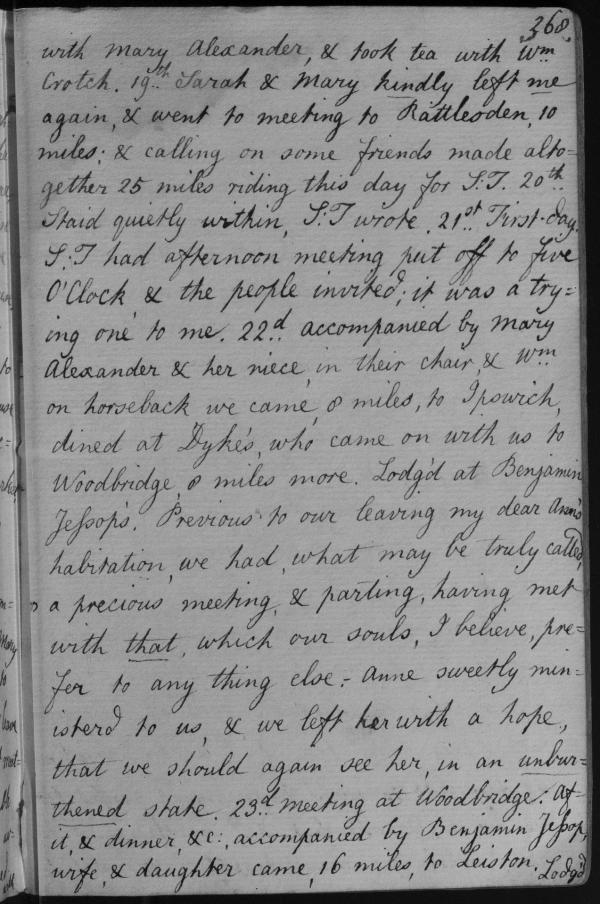 368
with Mary Alexander, & took tea with Wm
Crotch. 19th Sarah & Mary kindly left me
again, & went to meeting to Rattlesden, 10
miles; & calling on some friends made alto=
gether 25 miles riding this day for S:T. 20th
Staid quietly within, S:T wrote. 21st First-day.
S:T had afternoon meeting put off to five
O'Clock & the people invited; it was a try=
ing one to me. 22d accompanied by Mary
Alexander & her niece in their chair, & Wm
on horseback we came, 8 miles, to Ipswich,
dined at Dyke's, who came on with us to
Woodbridge, 8 miles more. Lodg'd at Benjamin
Jessop's. Previous to our leaving my dear Ann's
habitation, we had, what may be truly called,
a precious meeting, & parting, having met
with that, which our souls, I believe, pre=
fer to any thing else:- Anne sweetly min=
ister'd to us, & we left her with a hope,
that we should again see her, in an unbur=
thened state. 23d meeting at Woodbridge: Af=
it, & dinner, &c:, accompanied by Benjamin Jessop,
wife, & daughter came, 16 miles, to Leiston. Lodg'd